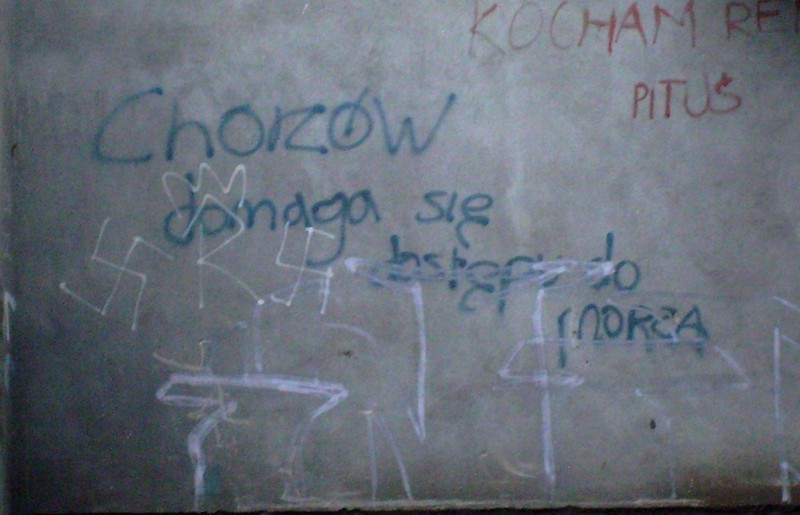 KOCHAM
PITUS
Chorzów
domaga się
dostępu do
MORZA